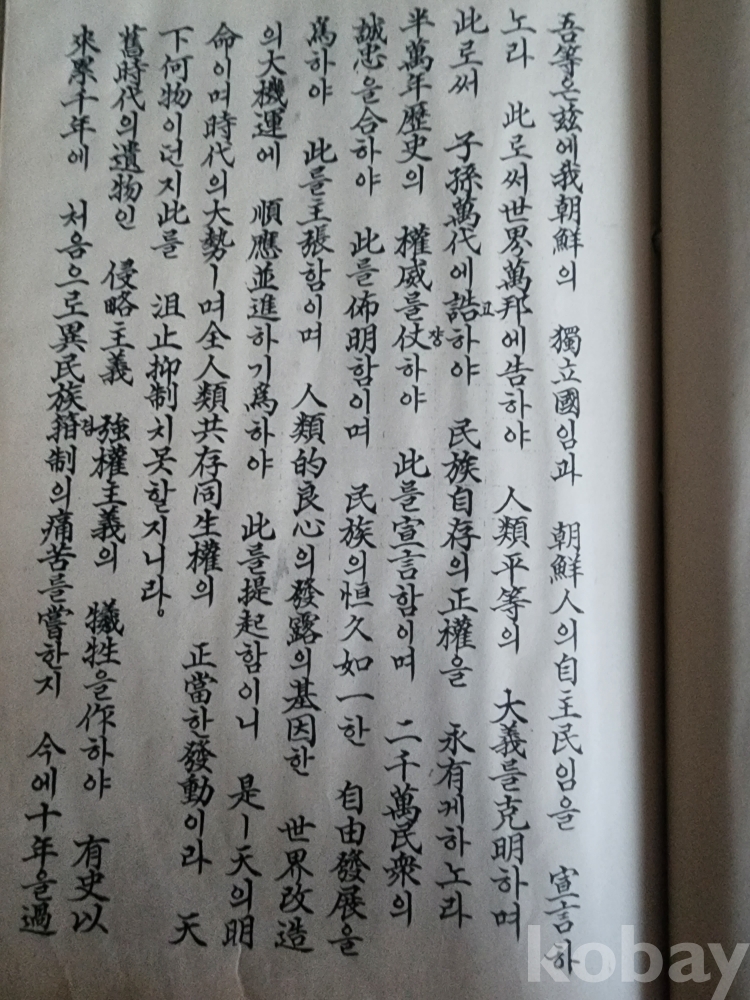 吾等은玆에我朝鮮의 獨立國임과 朝鮮人의自主民임을 宣言하
노라 此로써世界萬邦에告하야 人類平等의 大義를克明하며
此로써 子孫萬代에誥고하야 民族自存의正權을 永有케하노라
半萬年歷史의 權威를仗장하야 此를宣言함이며 二千萬民衆의
誠忠을合하야 此를佈明함이며 民族의恒久如一한 自由發展을
爲하야 此를主張함이며 人類的良心의發露의基因한 世界改造
의大機運에 順應並進하기爲하야 此를提起함이니 是ㅣ天의明
命이며時代의大勢ㅣ며全人類共存同生權의 正當한發動이라 天
下何物이던지此를 沮止抑制치못할지니라。
舊時代의遺物인 侵略主義 強權主義의 犧牲을作하야 有史以
來累千年에 처음으로異民族箝겸制의痛苦를嘗한지 今에十年을過
kobay